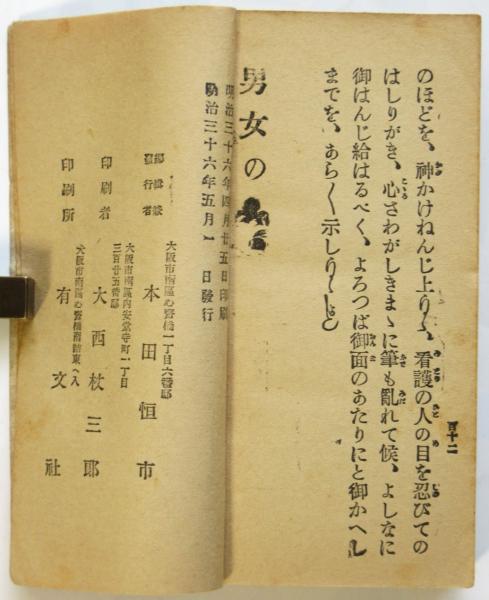 百十二
のほどを、神かけねんじ上り〱、看護の人の目を忍びての
はしりがき、心さわがしきまゝに筆も亂れて候、よしなに
御はんじ給はるべく、よろつは御面のあたりにと御かへし
までを、あら〱示しり〱しど
男女の
明治三十六年四月廿五日印刷
明治三十六年五月一日發行
大阪市南區心齋橋一丁目六番邸
發行者 本田恒市
大阪市南區内安堂寺町一丁目
三百廿五番邸
印刷者 大西杖三郎
大阪市南區心齋橋南詰東ヘ入
印刷所 有文社